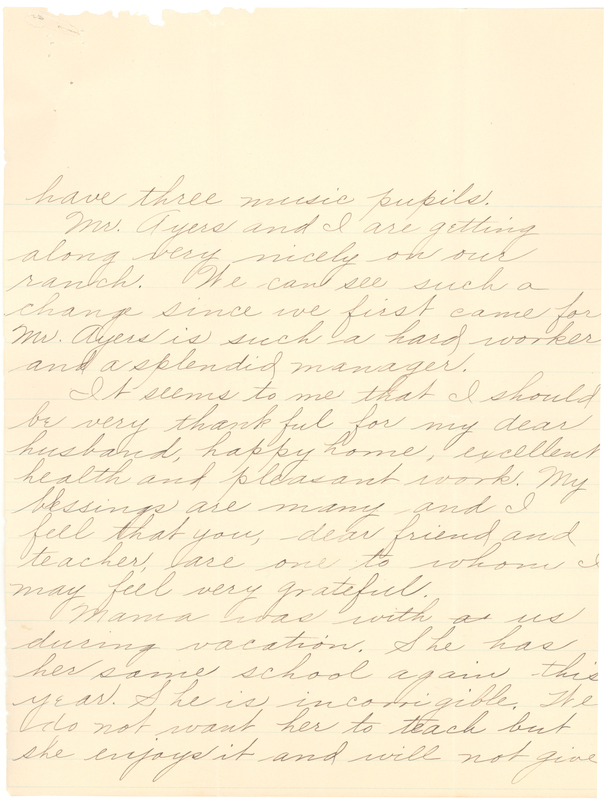 have three music pupils.
Mr. Ayers and I are getting
along very nicely on our
ranch. We can see such a
change since we first came for
Mr. Ayers is such a hard worker
and a splendid manager.
It seems to me that I should
be very thankful for my dear
husband, happy home, excellent
health and pleasant work. My
blessings are many and I
feel that you, dear friend and
teacher, are one to whom I
may feel very grateful.
Mama was with us
during vacation. She has
her same school again this
year. She is incorrigible. We
do not want her to teach but
she enjoys it and will not give